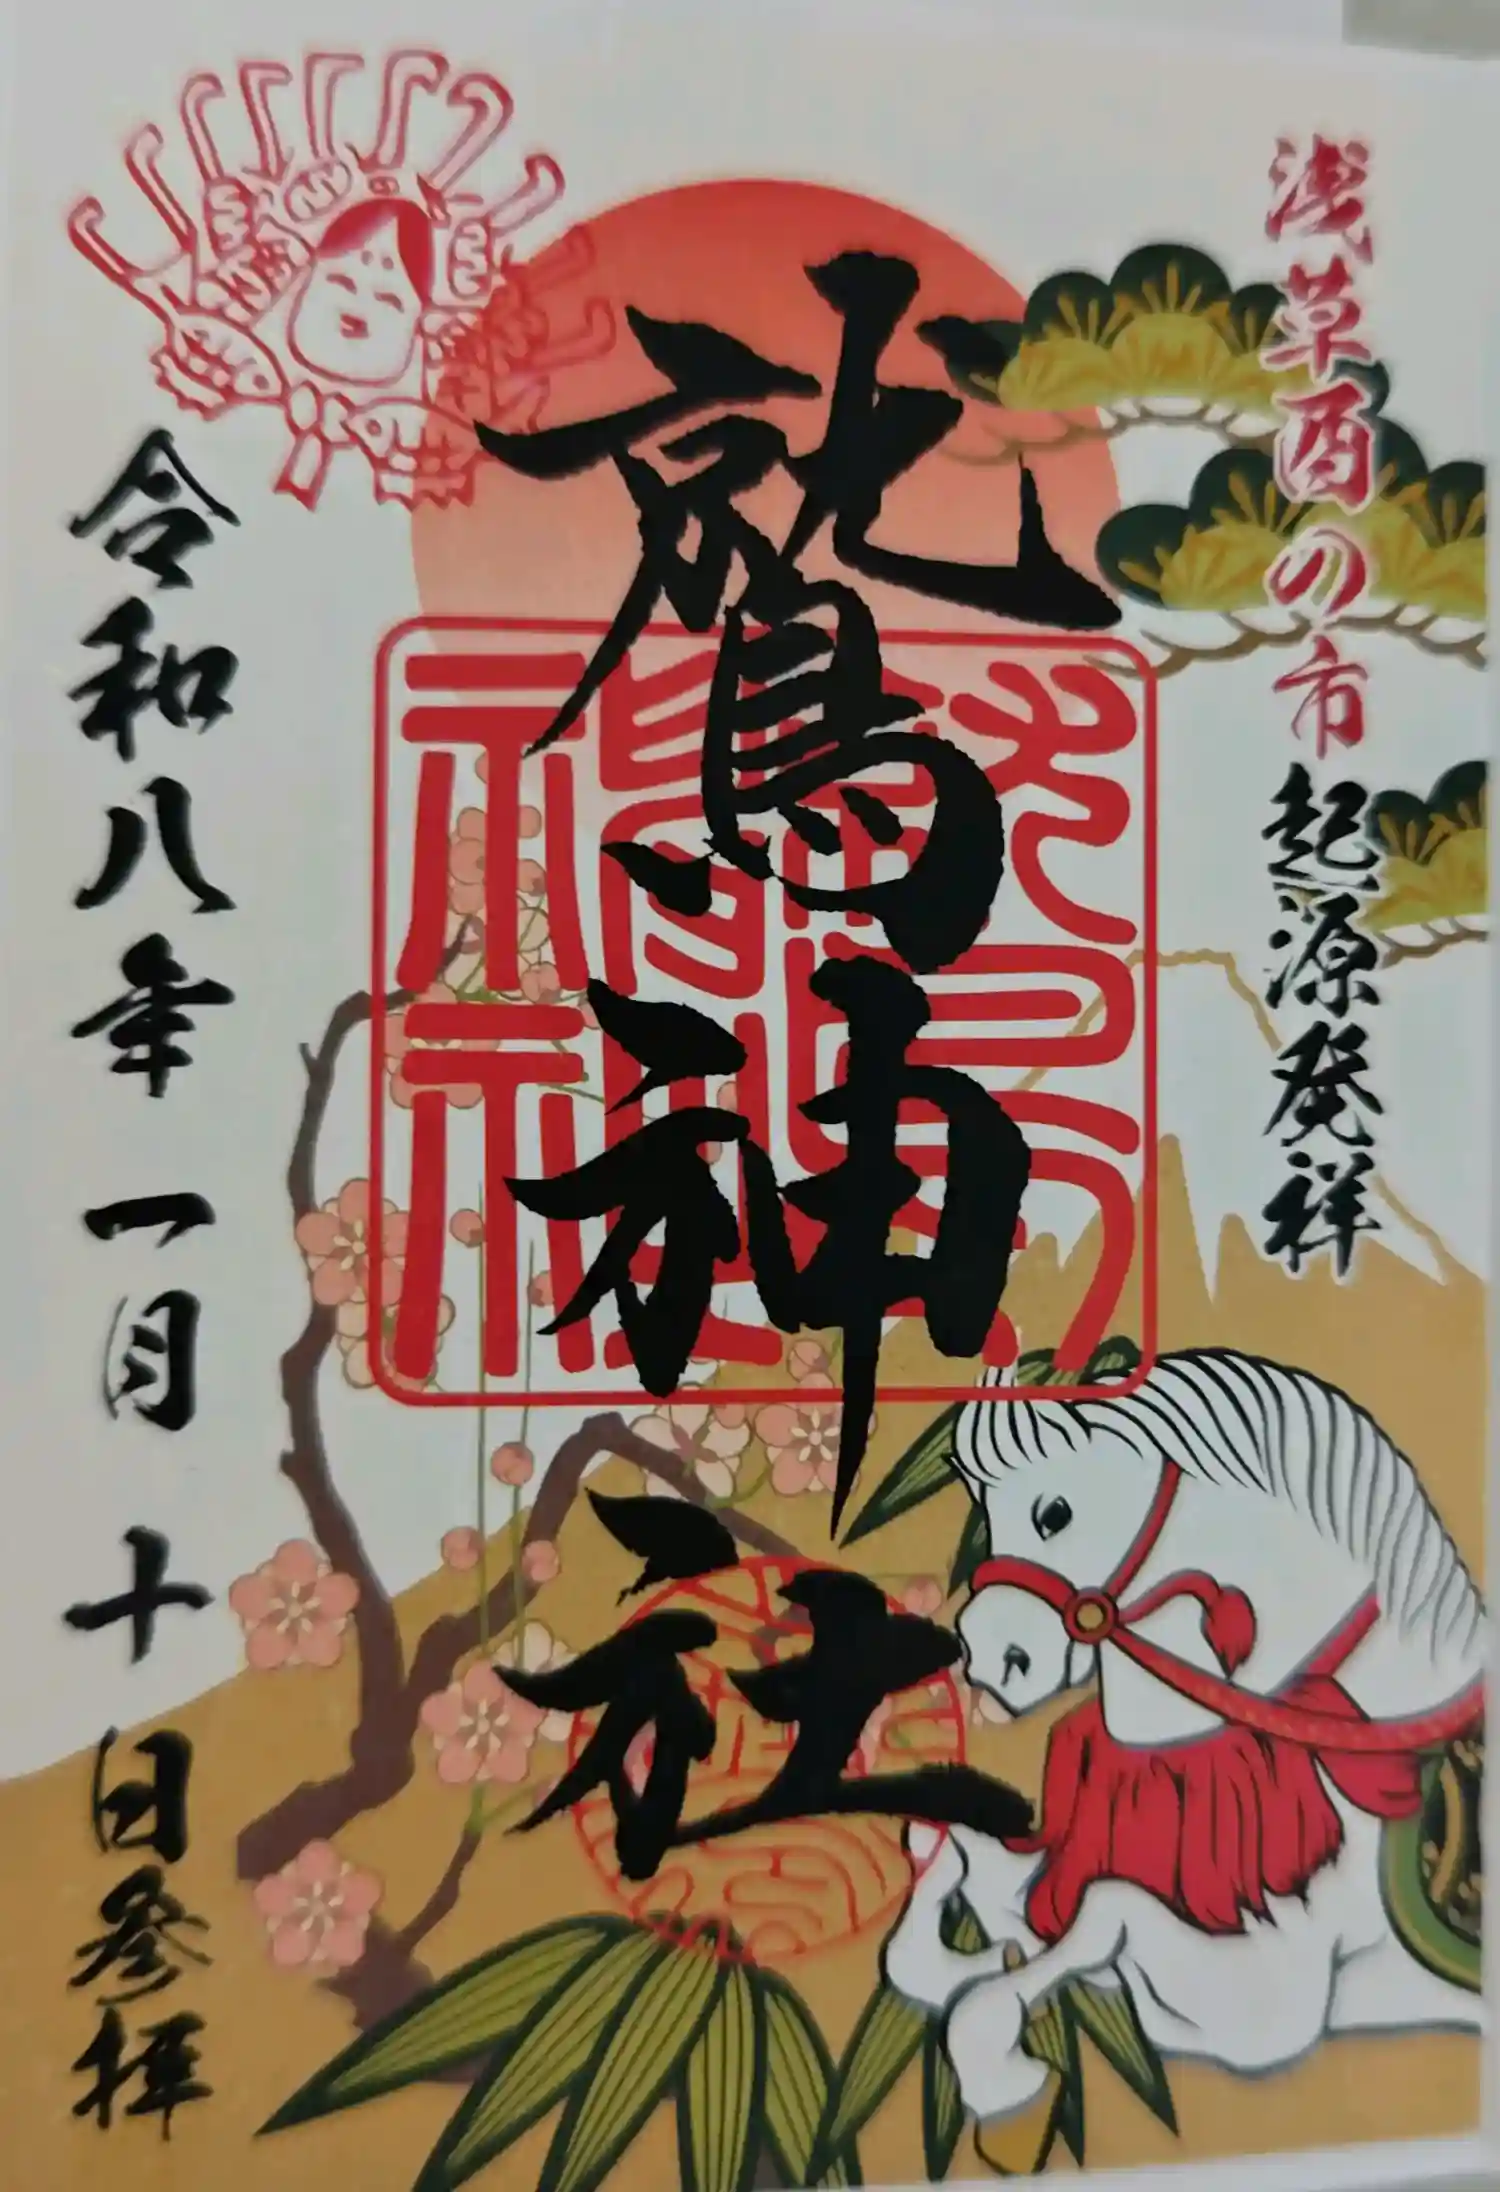 浅草酉の市起源発祥
鷲神社
鷲神社
令和八年一月十日参拝